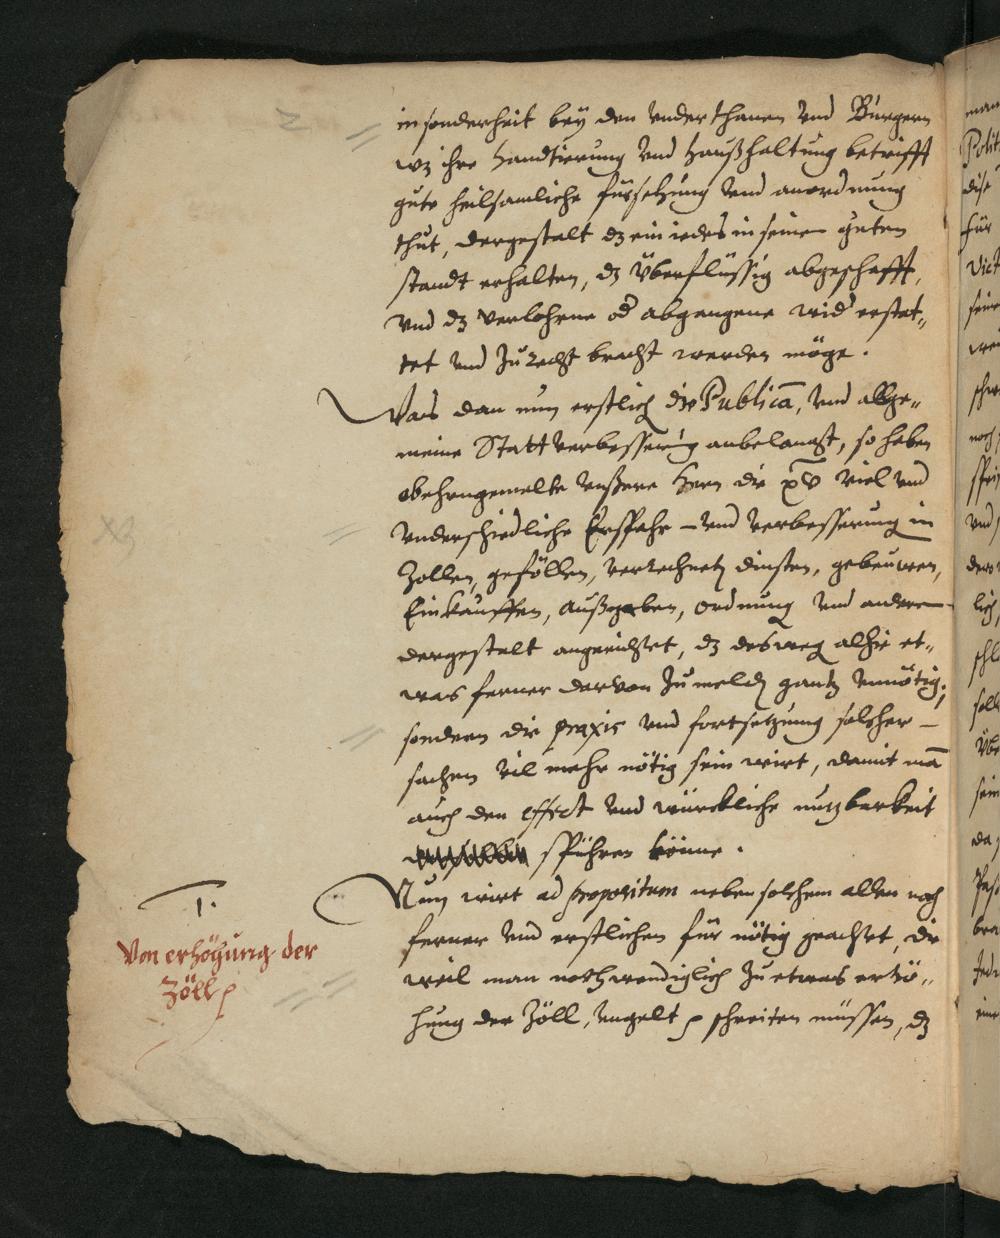 in sonderheit bey den underthanen und Burgern
wz ihre Handtierung und Haußhaltung betrifft
gute heilsamliche fürsehung und anordnung
thut, dergestalt dz ein iedes in seinem guten
standt erhalten, dz Überflüssig abgeschafft,
und dz verlohrne od abgangene wid erstat„
tet und zu recht bracht werden möge.
Was dan nun erstlich die Publica, und allge„
meine Statt verbesserung anbelangt, so haben
obehrngemelte unßere Herrn die XV viel und
underschiedliche Erspahr- und verbesserung in
Zollen, geföllen, verrechnet dinsten, gebeuwen,
Einkauffen, Außgaben, ordnung und andere
dergestalt angerichtet, dz desweg alhie et„
was ferner darvon zu meld gantz unnötig,
sondern die praxis und fortsetzung solcher
sachen vil mehr nötig sein wirt, damit ma
auch den effect und würckliche nutzbarkeit
spühren könne.
Nun wirt ad propositum neben solchem allen noch
ferner und erstlichen für nötig geachtet, die
weil man nothwendiglich zu etwas erhö„
hung der Zöll, ungelt schreiten müssen, dz
1.
Von erhöhung der
Zöll